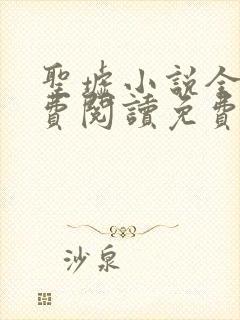 聖墟小說全
費閱讀免費
沙泉